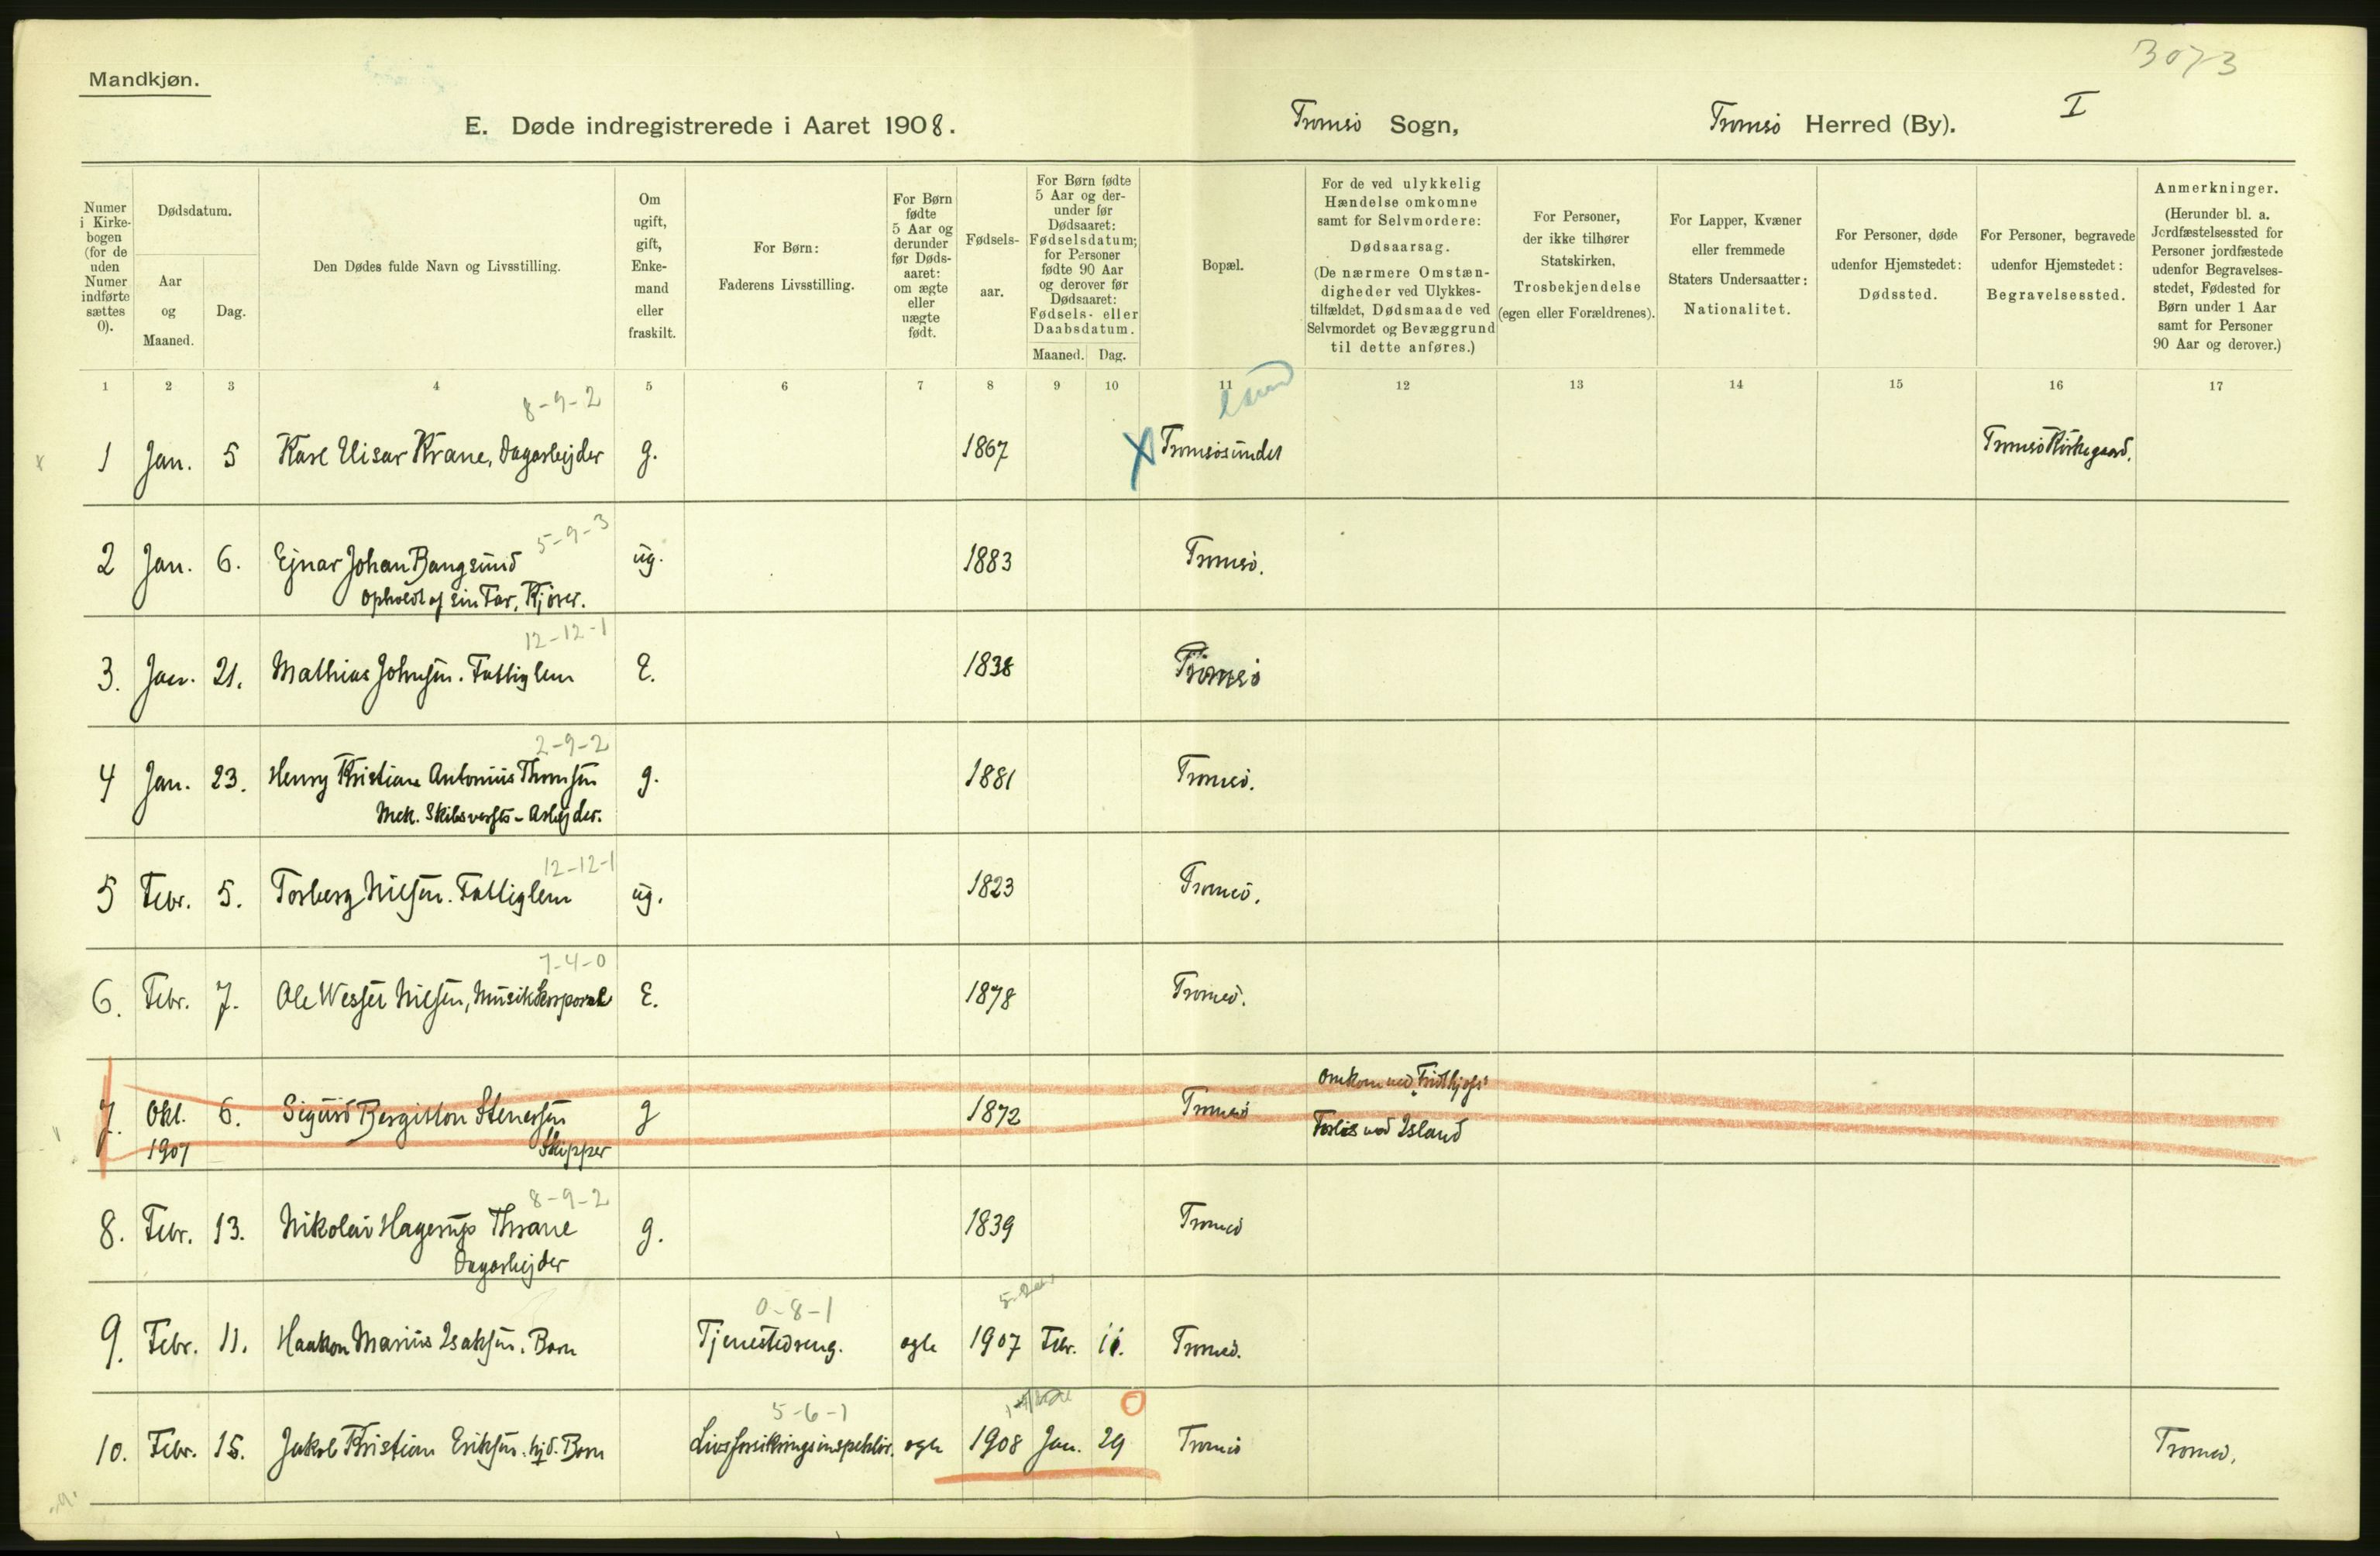 3073
Mandkjøn.
I
E. Døde indregistrerede i Aaret 1908. Tromsø Sogn, Tromsø Herred (By).
Numer
i Kirke-
bogen
(for de
uden
Numer
indførte
sættes
0).
Dødsdatum.
Aar
og
Maaned.
Dag.
Den Dødes fulde Navn og Livsstilling.
Om
ugift,
gift,
Enke-
mand
eller
fraskilt.
For Børn:
Faderens Livsstilling.
For Børn
fødte
5 Aar og
derunder
før Døds-
aaret:
om ægte
eller
uægte
født.
Fødsels-
aar.
For Børn fødte
5 Aar og der-
under før
Dødsaaret:
Fødselsdatum;
for Personer
fødte 90 Aar
og derover før
Dødsaaret:
Fødsels- eller
Daabsdatum.
Maaned. Dag.
Bopæl.
For de ved ulykkelig
Hændelse omkomne
samt for Selvmordere:
Dødsaarsag.
(De nærmere Omstæn-
digheder ved Ulykkes-
tilfældet, Dødsmaade ved
Selvmordet og Bevæggrund
til dette anføres.)
For Personer,
der ikke tilhører
Statskirken,
Trosbekjendelse
(egen eller Forældrenes).
For Lapper, Kvæner
eller fremmede
Staters Undersaatter:
Nationalitet.
For Personer, døde
udenfor Hjemstedet:
Dødssted.
For Personer, begravede
udenfor Hjemstedet:
Begravelsessted.
Anmerkninger.
(Herunder bl. a.
Jordfæstelsessted for
Personer jordfæstede
udenfor Begravelses-
stedet, Fødested for
Børn under 1 Aar
samt for Personer
90 Aar og derover.)
1 2 3 4 5 6 7 8 9 10 11 12 13 14 15 16 17
8-9-2
x 1 Jan. 5 Karl Krane, Dagarbejder g. 1867 X Tromsøsundet Tromsø Kirkegaard.
5-9-3
2 Jan. 6. Ejnar Johan Bangsund ug. 1883 Tromsø.
Opholdt af sin Far, Kjører.
12-12-1
3. Jan. 21. Mathias Johnsen. Fattiglem E. 1838 Tromsø
2-9-2
4 Jan. 23. Henry Kristian Antonius Thomsen g. 1881 Tromsø.
Mek. Skibsverfts-Arbejder.
12-12-1
5 Febr. 5. Torberg Nilsen. Fattiglem ug. 1823 Tromsø.
7-4-0
6. Febr. 7. Ole Nilsen, Musikkorporal E. 1878 Tromsø.
Omkom med "Fridthjofs"
7. Okt. 6. Sigurd Bergithon Stenersen g 1872 Tromsø
Forlis ved Island
1907 Skipper
8-9-2
8. Febr. 13. Nikolai Hagerup Thrane g. 1839 Tromsø
Dagarbejder
0-8-1
9. Febr. 11. Haakon Marius Isaksen. Barn Tjenestedreng. ægte 1907 Febr. 11. Tromsø.
5-6-1
10. Febr. 15. Jakob Kristian Eriksen. hjd. Barn Livsforsikringsinspektør. ægte 1908 Jan. 29 Tromsø Tromsø.